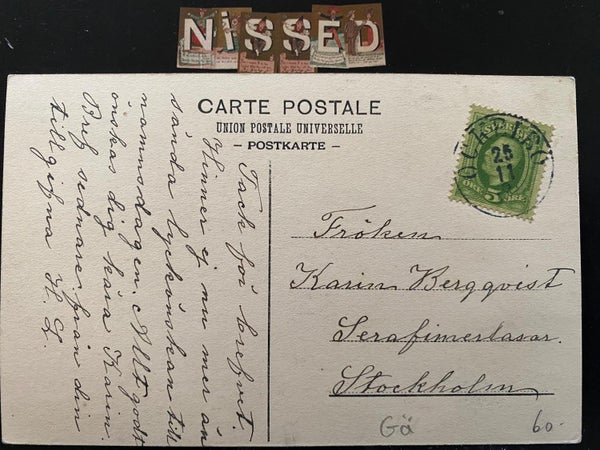 NiSSED
CARTE POSTALE
UNION POSTALE UNIVERSELLE
– POSTKARTE –
OCKELBO
25
11
5 ÖRE
Tack för brefvet.
Hinner ej nu mer än
sända lyckönskan till
namnsdagen. Allt godt
önskas dig kära Karin.
Bref sednare från din
tillgifna H. L.
Fröken
Karin Bergqvist
Serafimerlasar.
Stockholm
Gä
60-